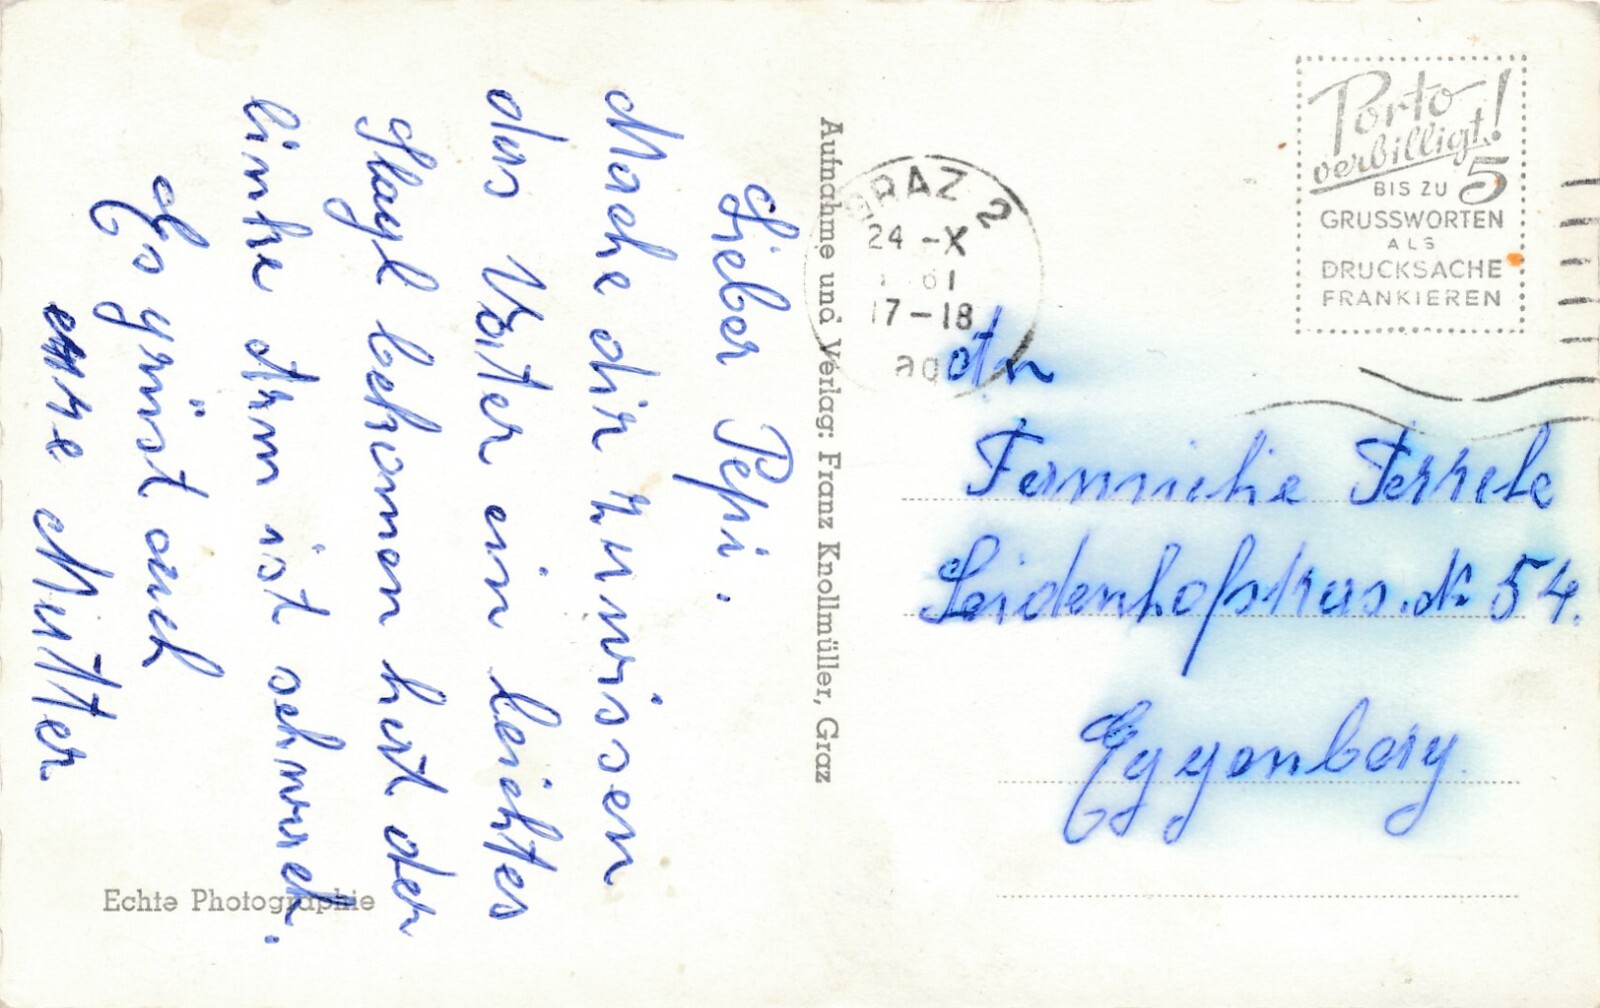 Lieber Pepi.
Mache dir zu wissen
das Vater ein leichtes
Schlagl bekomen hat der
linke Arm ist schwach.
Es grüst euch
eure Mutter
Aufnahme und Verlag: Franz Knollmüller, Graz
Echte Photographie
GRAZ 2
24 -X
61
17-18
Porto
verbilligt!
BIS ZU 5
GRUSSWORTEN
ALS
DRUCKSACHE
FRANKIEREN
An
Fammielie
No 54.
Eggenberg.